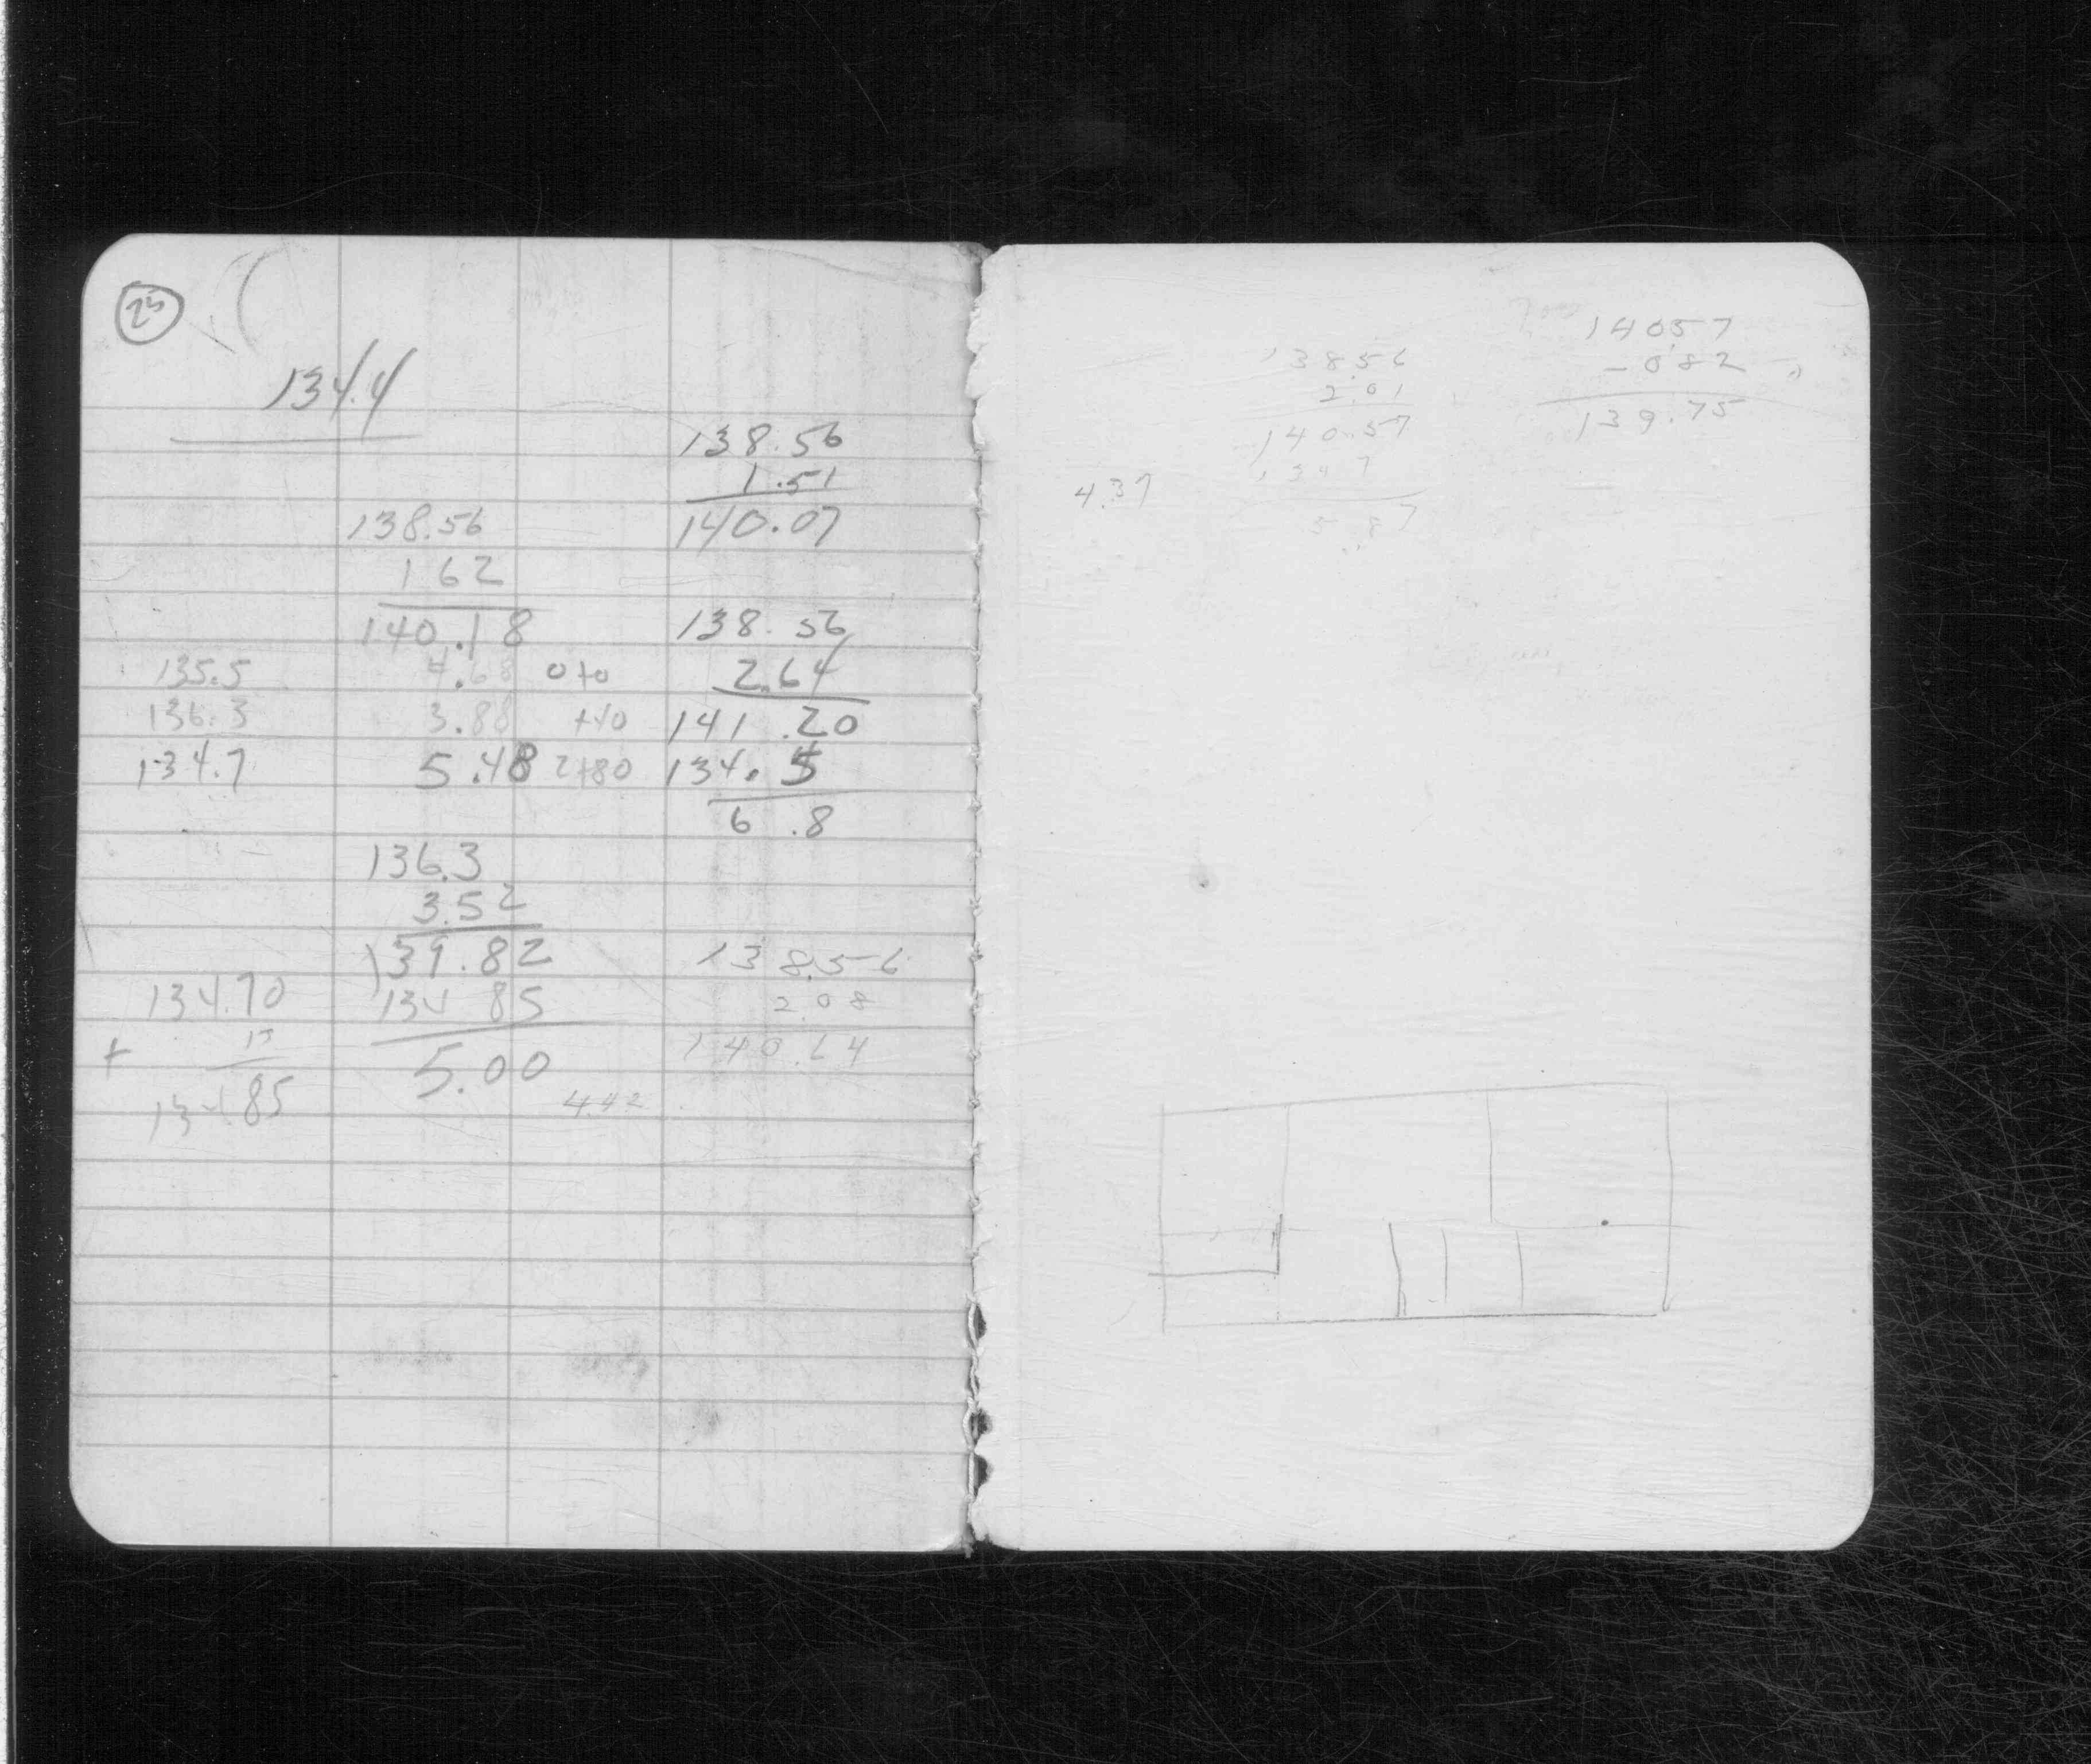 25
134.4
138.56
1.51
140.07
138.56
1 62
140.18
138.56
2.64
135.5 4.68 0+0
136.3 3.88 +40 141.20
134.7 5.48 2+80 134.4
6.8
136.3
3.52
139.82
134 85
5.00
134.70
+ 15
134.85
138.56
2.08
140.64
4.42
138.56
2.01
140.57
134 7
5.87
4.37
140.57
- 082
139.75